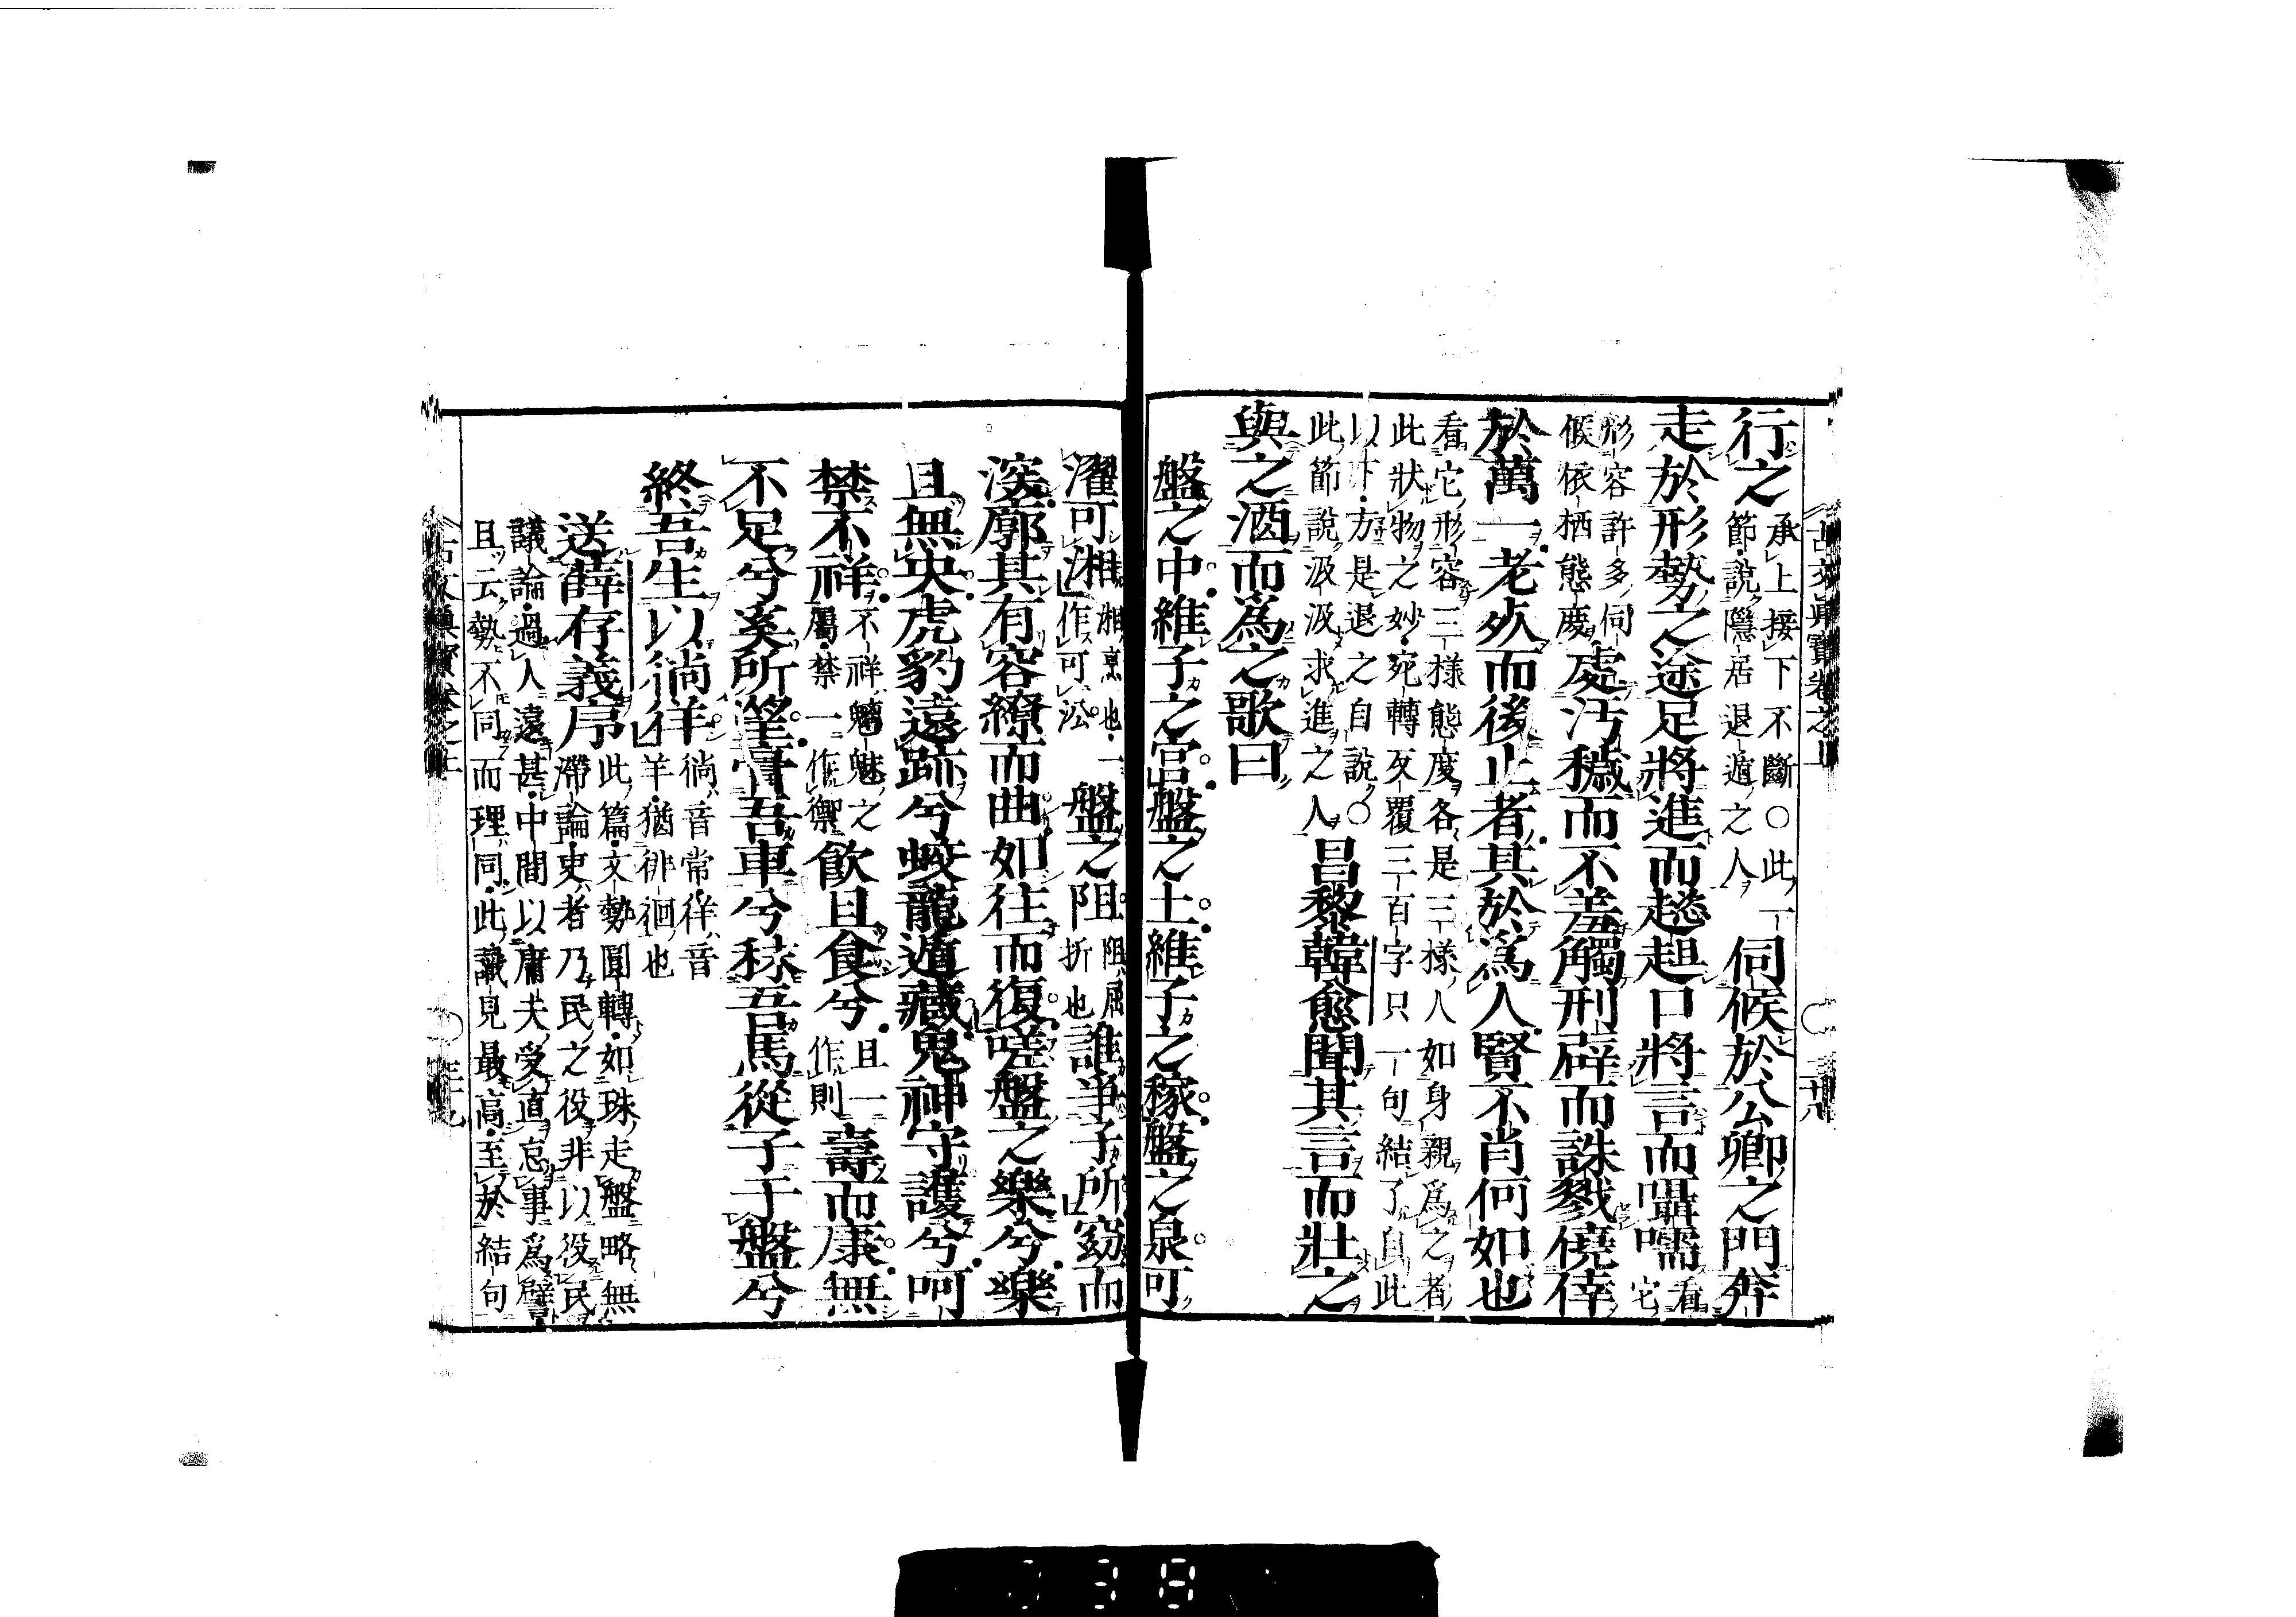 行之 承上接下不斷〇此一 伺候於公卿之門奔
節說隱居退遁之人
走於形勢之途足將進而趑趄口將言而囁嚅 看
它
形容許多伺 處汚穢而不羞觸刑辟而誅戮僥倖
候依栖態度
於萬一老死而後止者其於爲人賢不肖何如也
看它形容三樣態度各是三樣人如身親爲之者
此狀物之妙宛轉反覆三百字只一句結了自此
以下方是退之自說〇 昌黎韓愈聞其言而壯之
此節說汲汲求進之人
與之酒而爲之歌曰
盤之中維子之宮盤之土維子之稼盤之泉可
濯可湘 湘烹也一 盤之阻 阻屈 誰爭子所窈而
作可沿 折也
深廓其有容繚而曲如往而復嗟盤之樂兮樂
且無央虎豹遠跡兮蛟龍遁藏鬼神守護兮呵
禁不祥 不祥魑魅之 飮且食兮 且一 壽而康無
屬禁一作禦 作則
不足兮奚所望膏吾車兮秣吾馬從子于盤兮
終吾生以徜徉 徜音常徉音
羊猶徘徊也
送薛存義序 此篇文勢圓轉如珠走盤略無
滯論吏者乃民之役非以役民
議論過人遠甚中間以庸夫受直怠事爲譬
且云勢不同而理同此識見最高至於結句
古文眞寶卷之上 〇 三十八
古文眞寶卷之上 〇 三十九